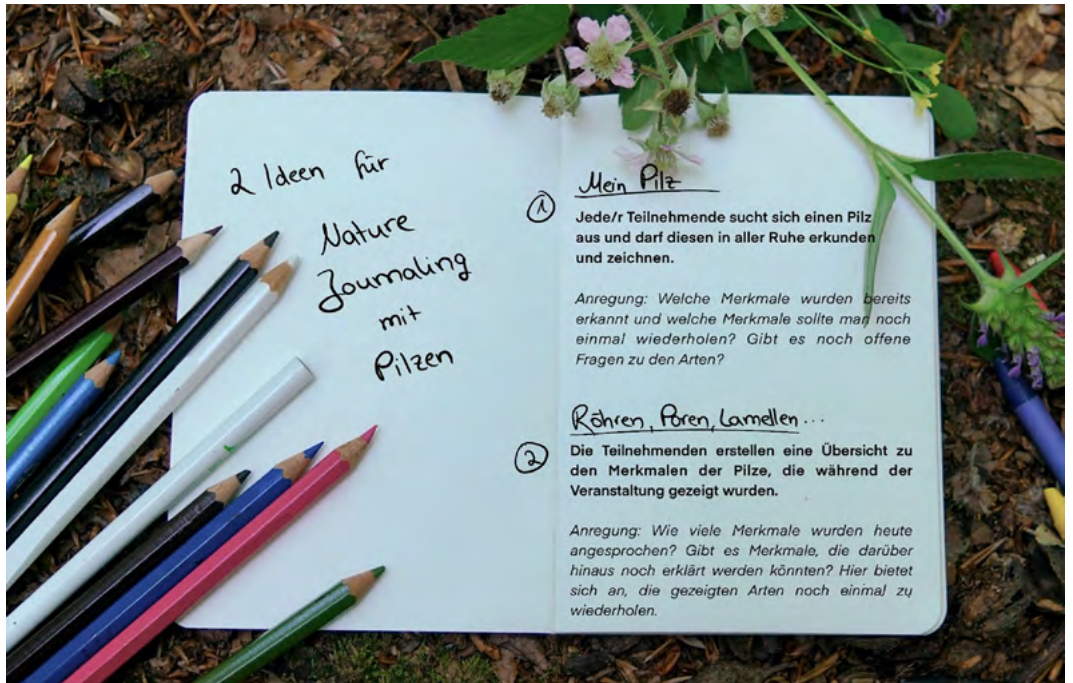 2 Ideen für
Nature
Journaling
mit
Pilzen
Mein Pilz
1
Jede/r Teilnehmende sucht sich einen Pilz
aus und darf diesen in aller Ruhe erkunden
und zeichnen.
Anregung: Welche Merkmale wurden bereits
erkannt und welche Merkmale sollte man noch
einmal wiederholen? Gibt es noch offene
Fragen zu den Arten?
Röhren, Poren, Lamellen...
2
Die Teilnehmenden erstellen eine Übersicht zu
den Merkmalen der Pilze, die während der
Veranstaltung gezeigt wurden.
Anregung: Wie viele Merkmale wurden heute
angesprochen? Gibt es Merkmale, die darüber
hinaus noch erklärt werden könnten? Hier bietet
sich an, die gezeigten Arten noch einmal zu
wiederholen.